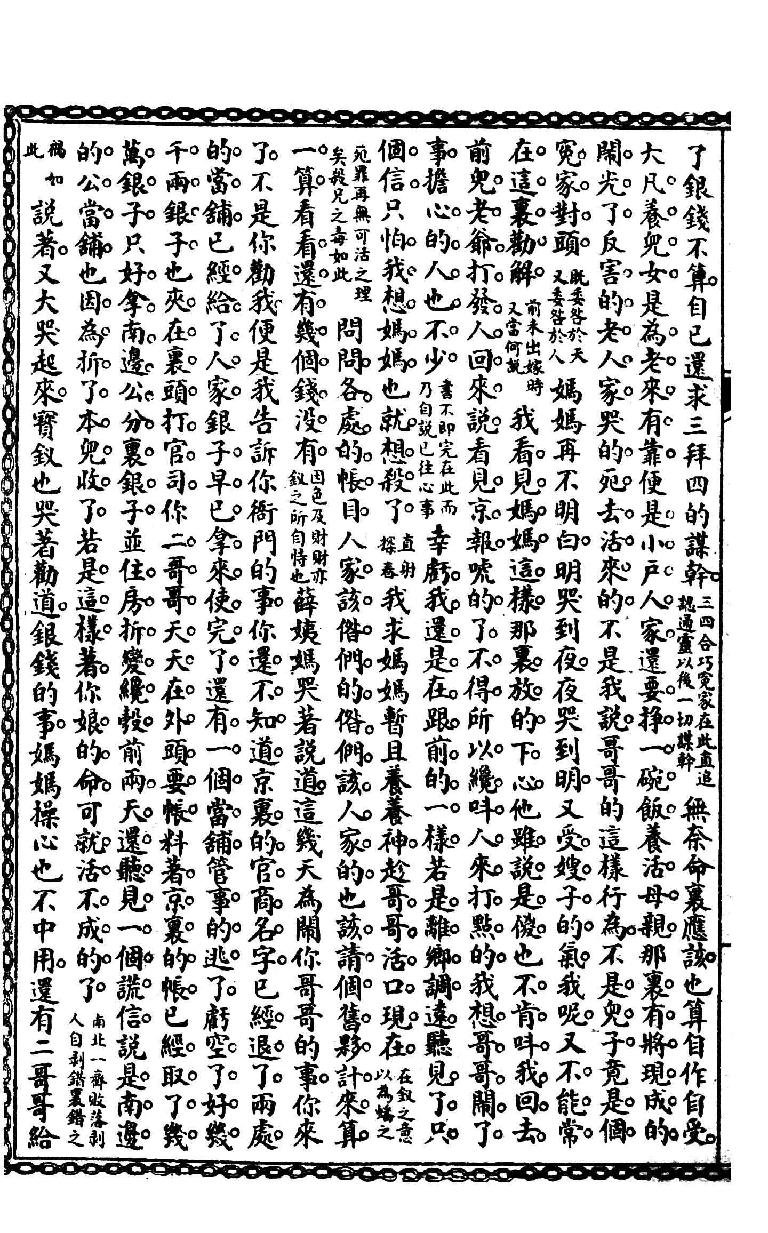 了銀錢不算自己還求三拜四的謀幹三四合巧冤家在此直追認通靈以後一切謀幹無奈命裏應該也算自作自受
大凡養兒女是為老來有靠便是小戶人家還要掙一碗飯養活母親那裏有將現成的
鬧光了反害的老人家哭的死去活來的不是我說哥哥的這樣行為不是兒子竟是個
冤家對頭既委咎於天又委咎於人媽媽再不明白明哭到夜夜哭到明又受嫂子的氣我呢又不能常
在這裏勸解前未出嫁時又當何說我看見媽媽這樣那裏放的下心他雖說是傻也不肯呌我回去
前兒老爺打發人回來說看見京報唬的了不得所以纔呌人來打點的我想哥哥鬧了
事擔心的人也不少書不即完在此而乃自說已往心事幸虧我還是在跟前的一樣若是離鄉調遠聽見了只
個信只怕我想媽媽也就想殺了直射探春我求媽媽暫且養養神趁哥哥活口現在在釵之意以為蟠之
死罪再無可活之理矣殺兄之毒如此問問各處的帳目人家該偺們的偺們該人家的也該請個舊夥計來算
一算看看還有幾個錢沒有因色及財財亦釵之所自恃也薛姨媽哭著說道這幾天為鬧你哥哥的事你來
了不是你勸我便是我告訴你衙門的事你還不知道京裏的官商名字已經退了兩處
的當舖已經給了人家銀子早已拿來使完了還有一個當舖管事的逃了虧空了好幾
千兩銀子也夾在裏頭打官司你二哥哥天天在外頭要帳料著京裏的帳已經取了幾
萬銀子只好拿南邊公分裏銀子並住房折變纔彀前兩天還聽見一個謊信說是南邊
的公當舖也因為折了本兒收了若是這樣著你娘的命可就活不成的了南北一齊收落剥人自剥錯裏錯之
禍如此說著又大哭起來寶釵也哭著勸道銀錢的事媽媽操心也不中用還有二哥哥給